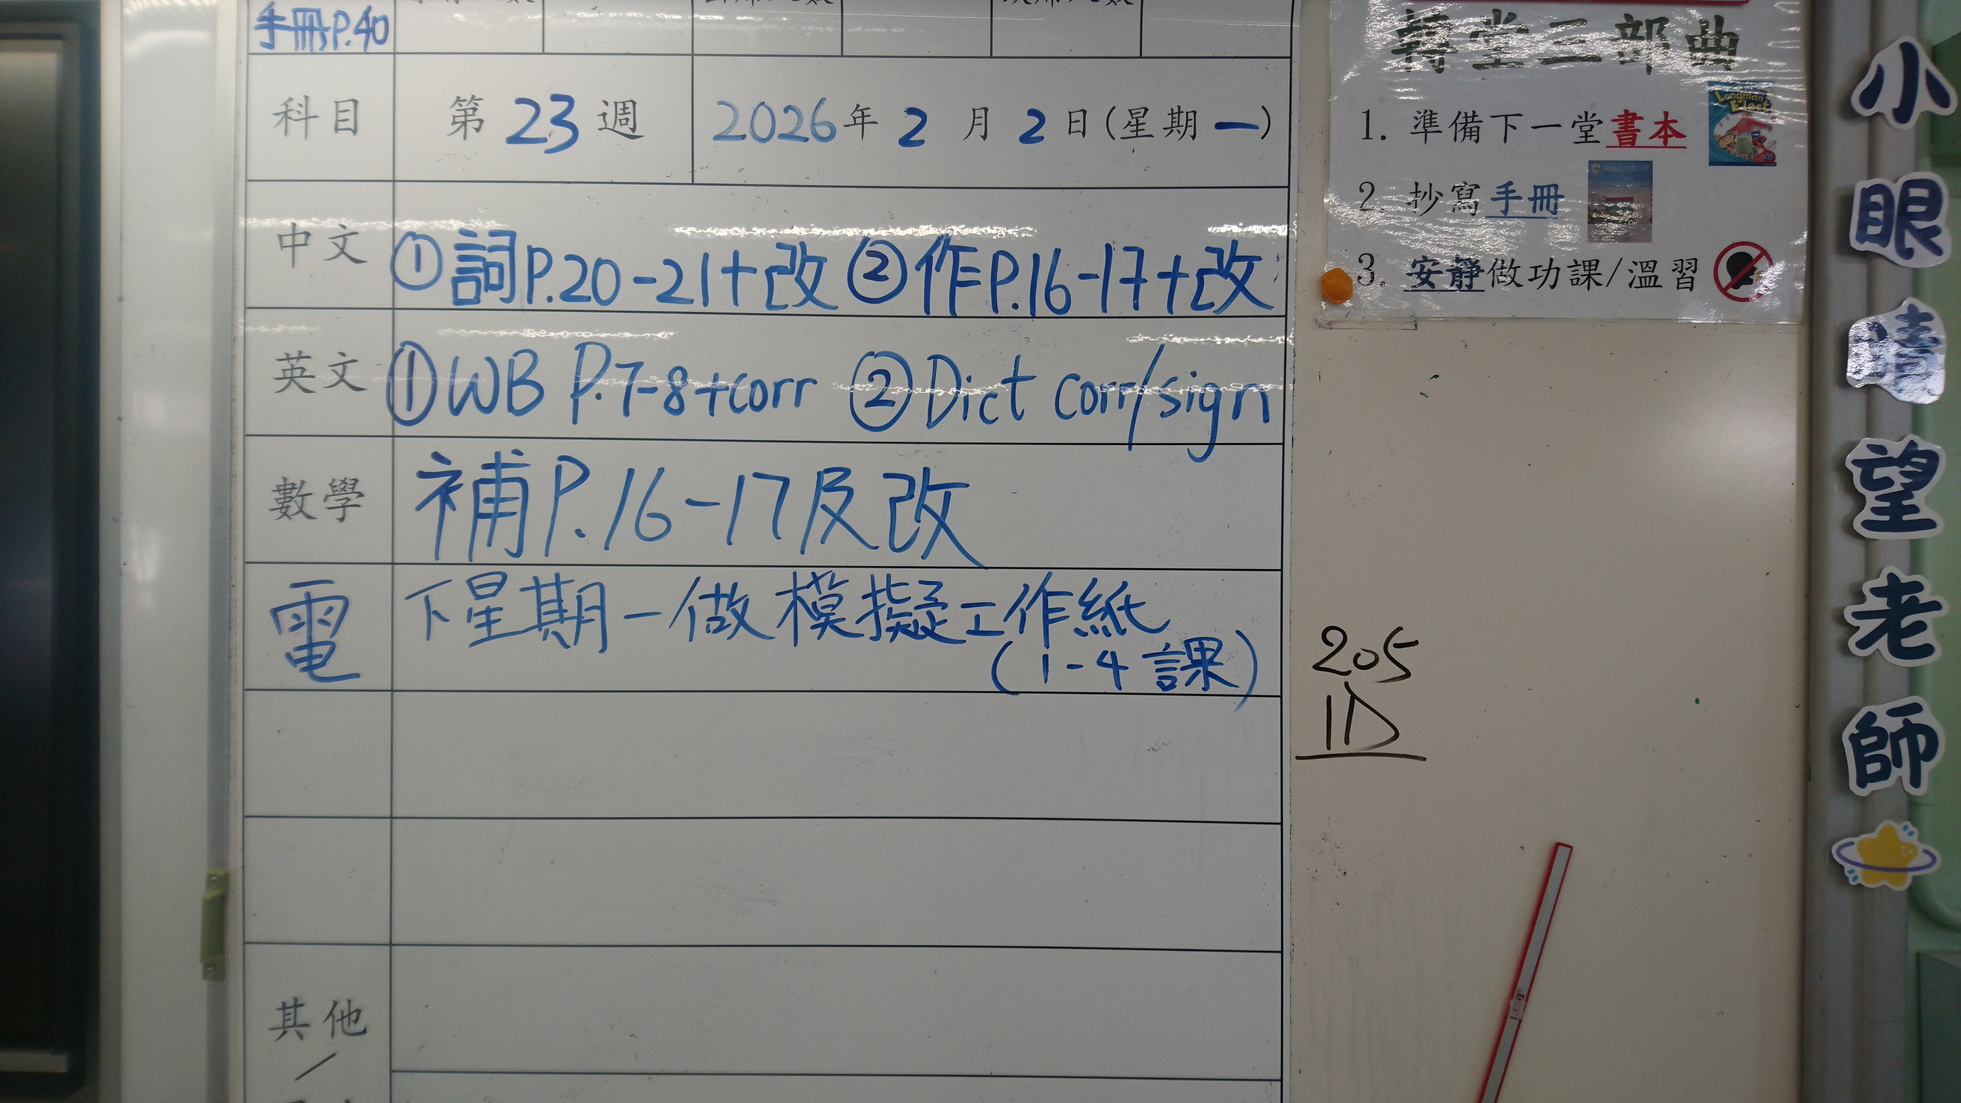 手冊P.40
科目 第23週 2026年2月2日(星期一)
中文 ①詞P.20-21+改 ②作P.16-17+改
英文 ①WB P.7-8+corr ②Dict corr/sign
數學 補P.16-17及改
電 下星期一做模擬工作紙
(1-4課)
其他
/
轉堂三部曲
1. 準備下一堂書本
2. 抄寫手冊
3. 安靜做功課/溫習
205
1D
小眼睛望老師